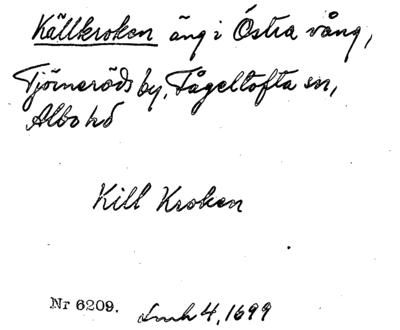 Källkroken äng i Östra vång,
Tjörneröds by, Fågeltofta sn,
Albo hd
Kill Kroken
Nr 6209. Lmh 4, 1699